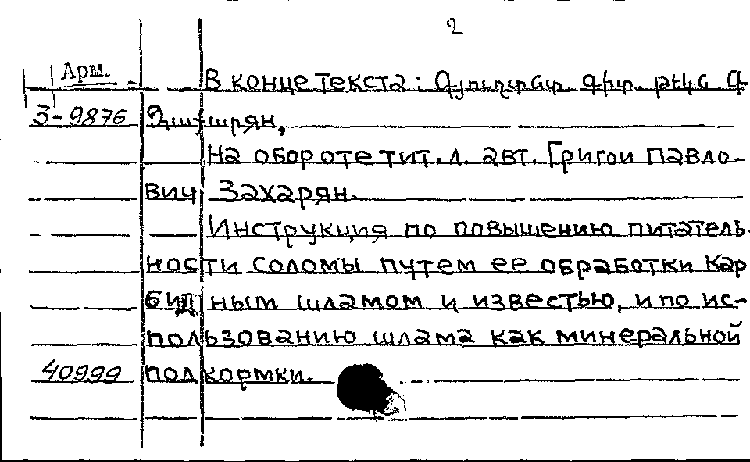 2
Арм.
В конце текста: Գյուղատնտ. գիտ. թեկն. Գ
3-9876
На обороте тит. л. авт. Григои Павло-
вич Захарян.
Инструкция по повышению питатель-
ности соломы путем ее обработки кар
бидным шламом и известью, и по ис-
пользованию шлама как минеральной
40999 подкормки.